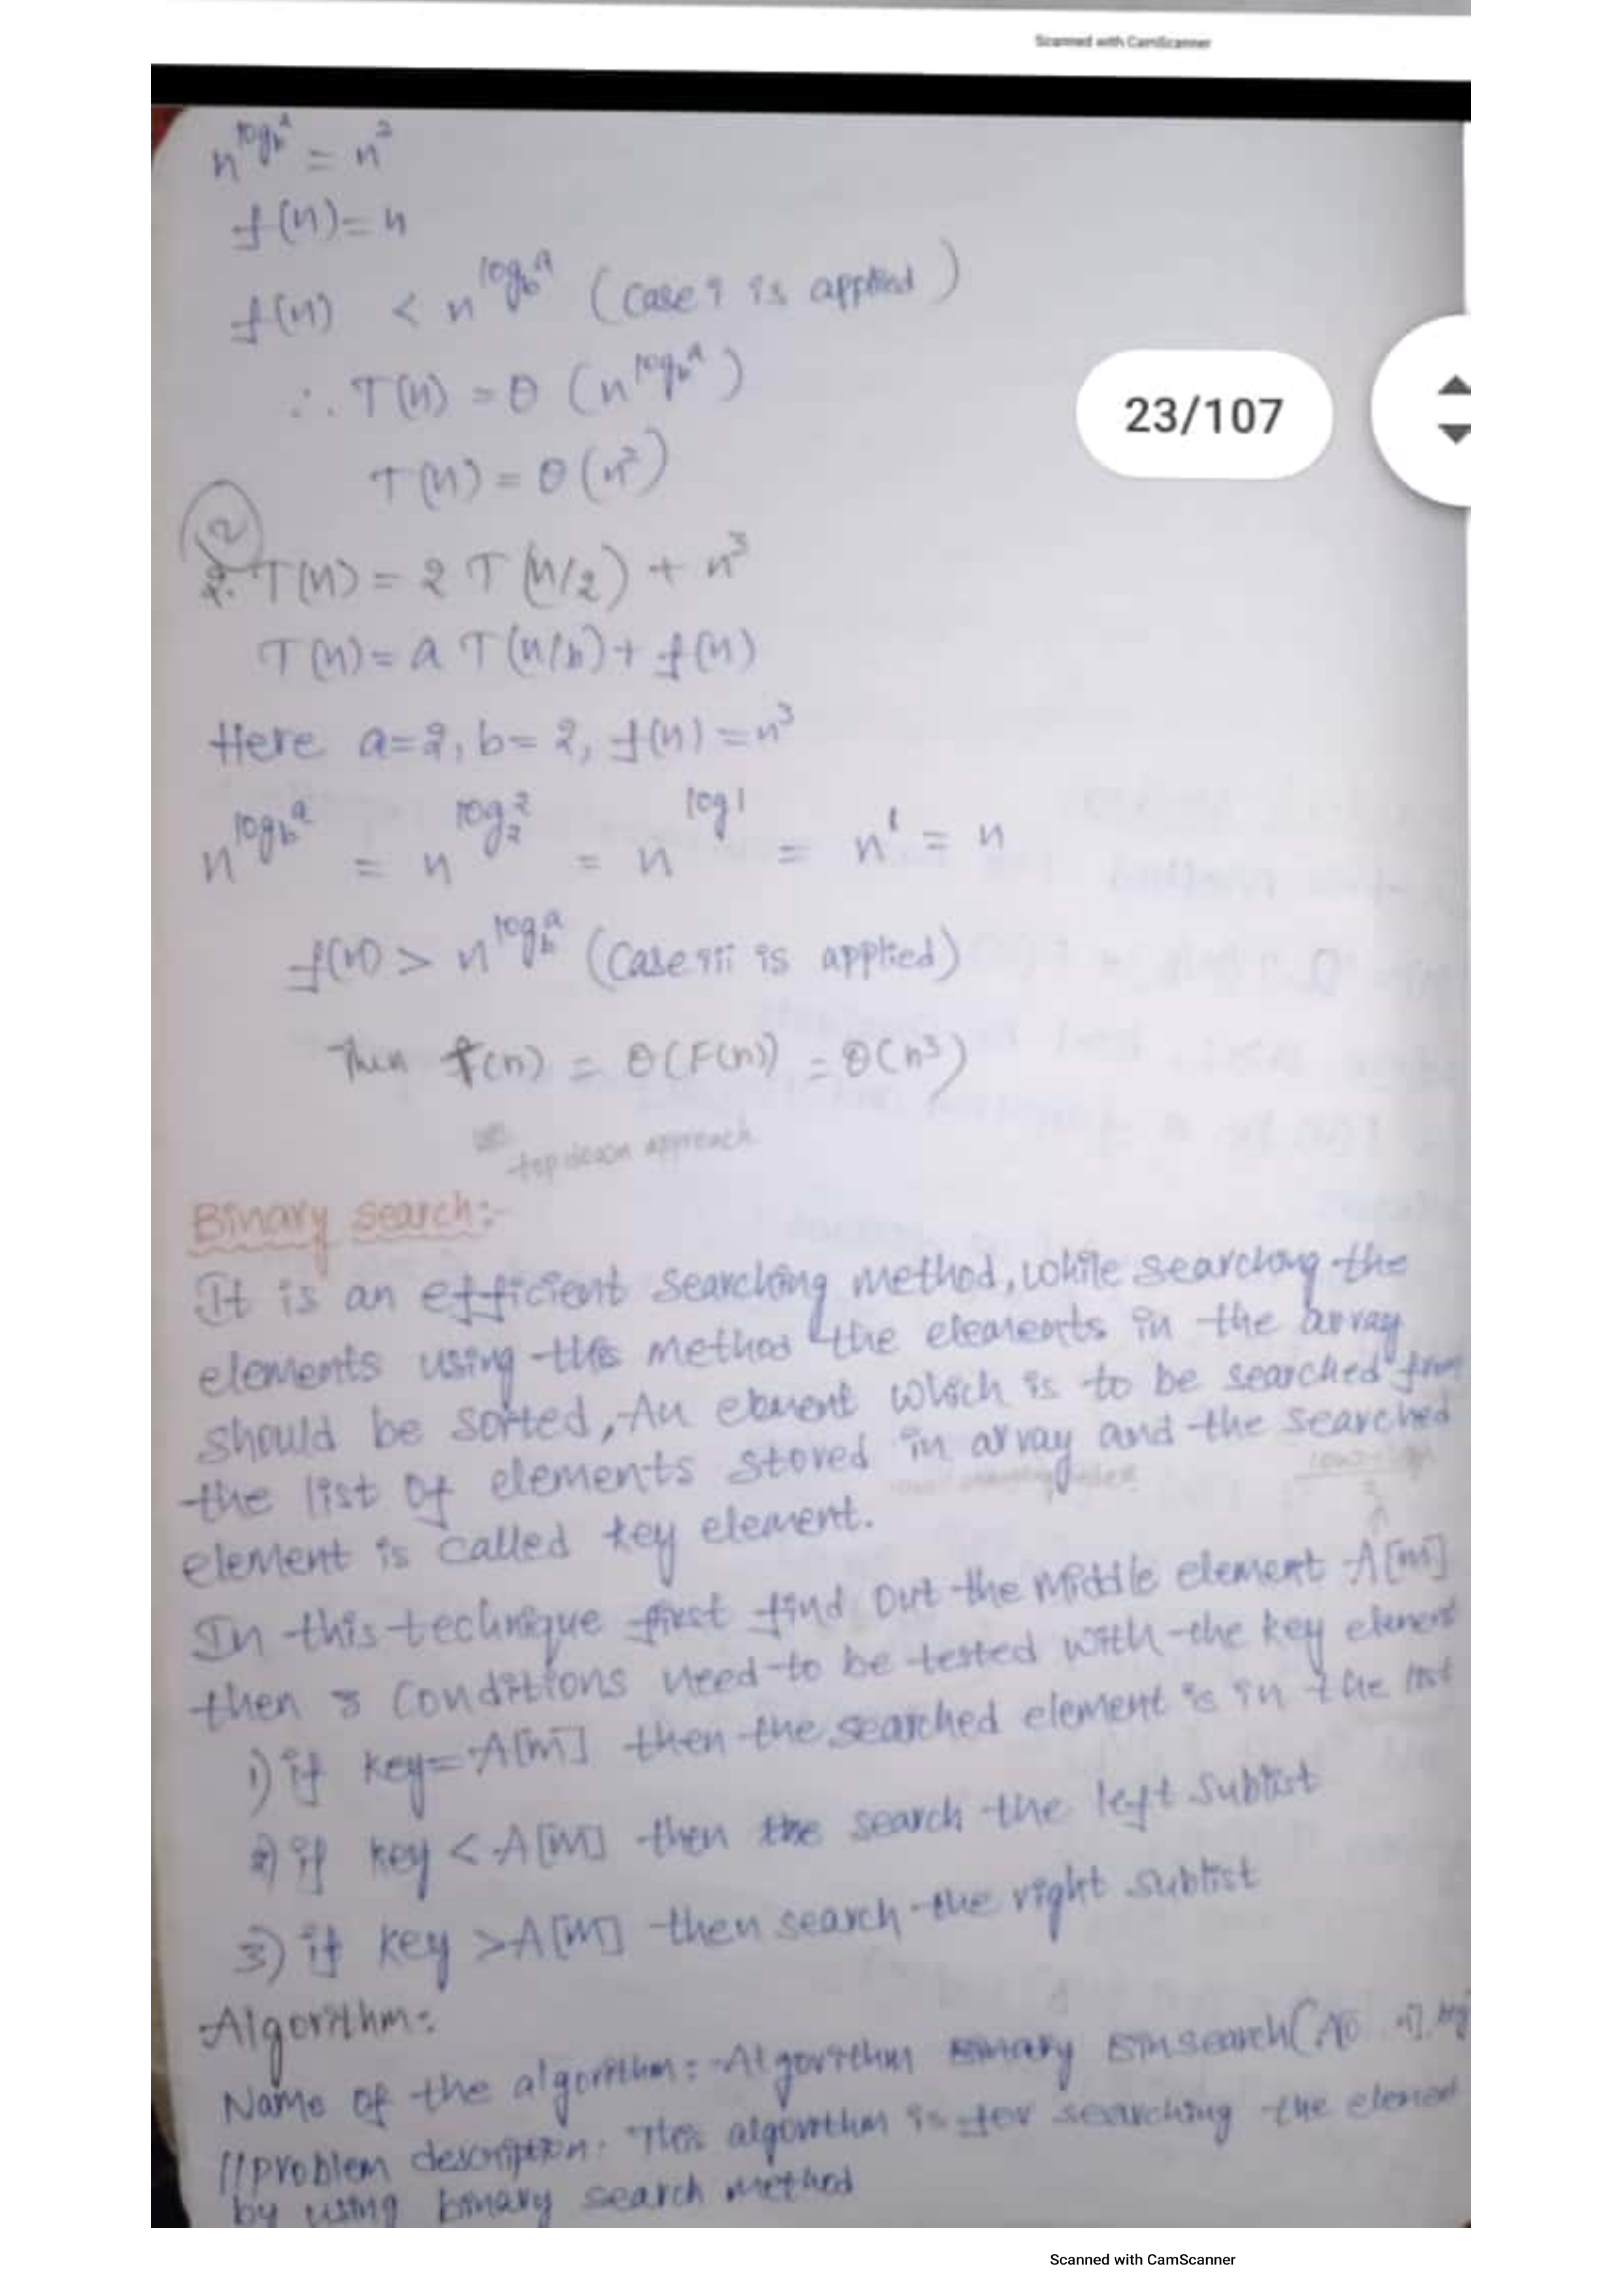 Scanned with CamScanner
n^log_b^a = n^2
f(n) = n
f(n) < n^log_b^a (case i is applied)
∴ T(n) = θ (n^log_b^a)
23/107
T(n) = θ(n^2)
2
2. T(n) = 2 T(n/2) + n^3
T(n) = a T(n/b) + f(n)
Here a=2, b=2, f(n) = n^3
n^log_b^a = n^log_2^2 = n^log1 = n^1 = n
f(n) > n^log_b^a (Case iii is applied)
Then f(n) = θ(F(n)) = θ(n^3)
top down approach
Binary search:-
It is an efficient searching method, while searching the
elements using this method the elements in the array
should be sorted, An element which is to be searched from
the list of elements stored in array and the searched
element is called key element.
In this technique first find out the middle element A[m]
then 3 conditions need to be tested with the key element
1) if key = A[m] then the searched element is in the list
2) if key < A[m] then the search the left sublist
3) if key > A[m] then search the right sublist
Algorithm:
Name of the algorithm: Algorithm Binary Binsearch(
//problem description: This algorithm is for searching the element
by using binary search method
Scanned with CamScanner